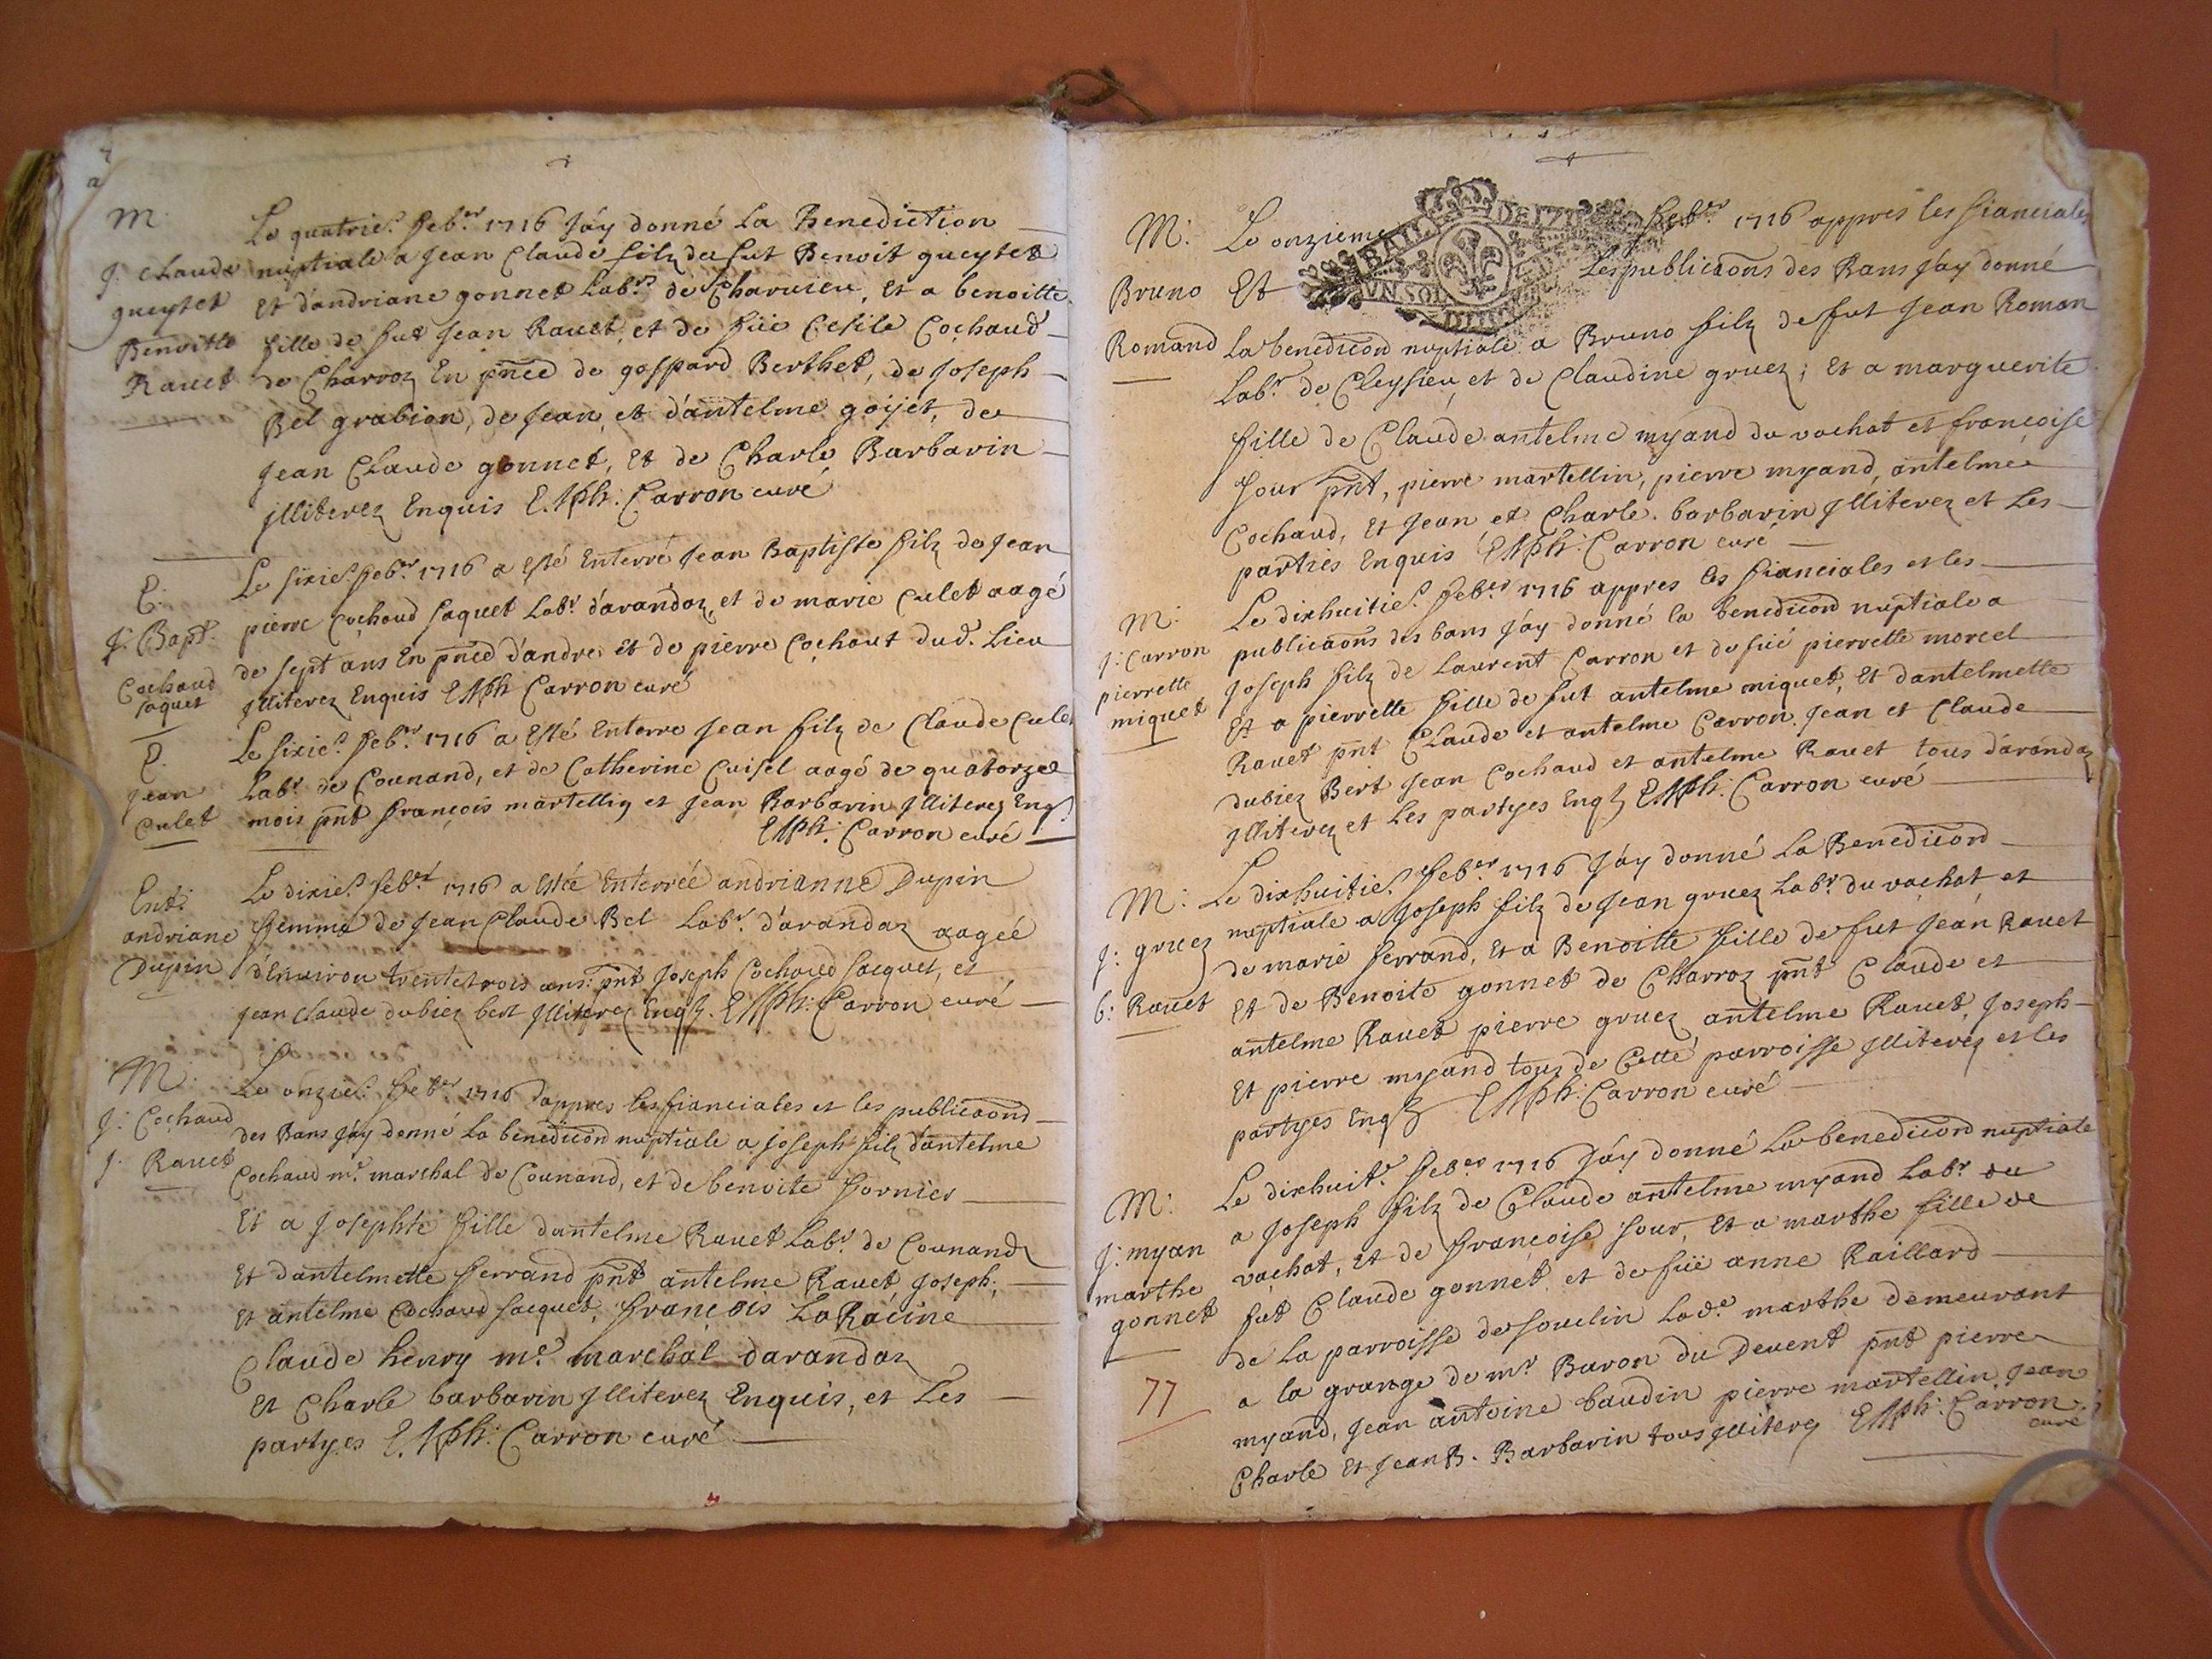 M.
Le quatrie. feb.er 1716 Jáy donné La Benediction
J: claude nuptiale a Jean Claude filz de fut Benoit gueytet
gueytet Et dándriane gonnet Lab.r de Charuieu, Et a benoitte
Benoitte fille de fut Jean Rauet, et de füe Cesile Cochaud
Rauet de Charroz En pñce de gaspard Berthet, de Joseph
Bel grabion, de Jean, et dántelme goÿet, de
Jean Claude gonnet, Et de Charle Barbarin
jlliterez Enquis E. Carron curé
E: Le sixie. feb.er 1716 a Esté Enterré Jean Baptiste filz de Jean
J: Bapt. pierre Cochoud Jaquet Lab.r dárandaz, et de marie Culet aagé
Cochoud de sept ans En pñce dándre et de pierre Cochout dud. Lieu
Jaquet jlliterez Enquis Carron curé
E. Le sixie. feb.er 1716 a Esté Enterre Jean filz de Claude Culet
Jean Lab.r de Counand, et de Catherine Cuisel aagé de quatorze
Culet mois pñt françois martellin et Jean Barbarin jlliterez Enq
Carron curé
Ent: Le dixie. feb.er 1716 a Estée Enterréé andrianne Dupin
andriane femme de Jean Claude Bel Lab.r dárandaz aagéé
Dupin dEnuiron trentetrois ans: pñt Joseph Cochoud Jacquet, et
Jean claude dubiez bert jlliterez Enq. Carron curé
M: Le onzie. feb.er 1716 appres les fianciales et les publicaõns
J: Cochaud des Bans Jáy donné la bénédicõn nuptiale a Joseph filz dántelme
J: Rauet Cochaud m.e marchal de Counand, et de benoite fornier
Et a Josephte fille dantelme Rauet Lab.r de Counand
Et dantelmette ferrand pñt antelme Rauet, Joseph,
Et antelme Cochaud Jacquet, françois LaRacine
Claude henry m.e marchal darandaz
Et Charle barbarin jlliterez Enquis, et Les
partyes E. Carron curé
M: Le onzieme feb.er 1716 appres les fianciales
Bruno Et Les publicaõns des Bans Jáy donné
Romand La benedicõn nuptiale a Bruno filz de fut Jean Roman
Lab.r de Cleysieu, et de Claudine gruez; Et a marguerite
fille de Claude antelme myand du vachat et françoise
Jour pñt, pierre martellin, pierre myand, antelme
Cochaud, Et Jean et Charle. barbarin jlliterez et Les
parties Enquis Carron curé
M: Le dixhuitie. feb.er 1716 appres les fianciales et les
J: Carron publicaõns des bans Jáy donné la benedicõn nuptiale a
pierrette Joseph filz de Laurent Carron et de füé pierrette morcel
miquet Et a pierrette fille de fut antelme miquet, Et dantelmette
Rauet pñt Claude et antelme Carron. Jean et Claude
dubiez Bert Jean Cochaud et antelme Rauet tous dárandaz
jlliterez et Les partyes Enq Carron curé
M: Le dixhuitie. feb.er 1716 Jáy donné La Benedicõn
J: gruez nuptiale a Joseph filz de Jean gruez Lab.r du vachat et
de marie ferrand, Et a Benoitte fille de fut Jean Rauet
b: Rauet Et de Benoite gonnet de Charroz pñt Claude et
antelme Rauet pierre gruez antelme Rauet, Joseph
Et pierre myand tous de Cette parroisse jlliterez et les
partyes Enq Carron curé
M: Le dixhuit.e feb.er 1716 Jáy donné La benedicõn nuptiale
J: myan a Joseph filz de Claude antelme myand Lab.r du
marthe vachat, Et de françoise Jour, Et a marthe fille de
gonnet fut Claude gonnet, et de füé anne Raillard
de La parroisse de Souclin Lad.e marthe demeurant
77 a la grange de m.r Buron du Deuent pñt pierre
myand, Jean antoine baudin pierre martellin Jean
Charle Et Jean B. Barbarin tous jlliterz Carron
curé